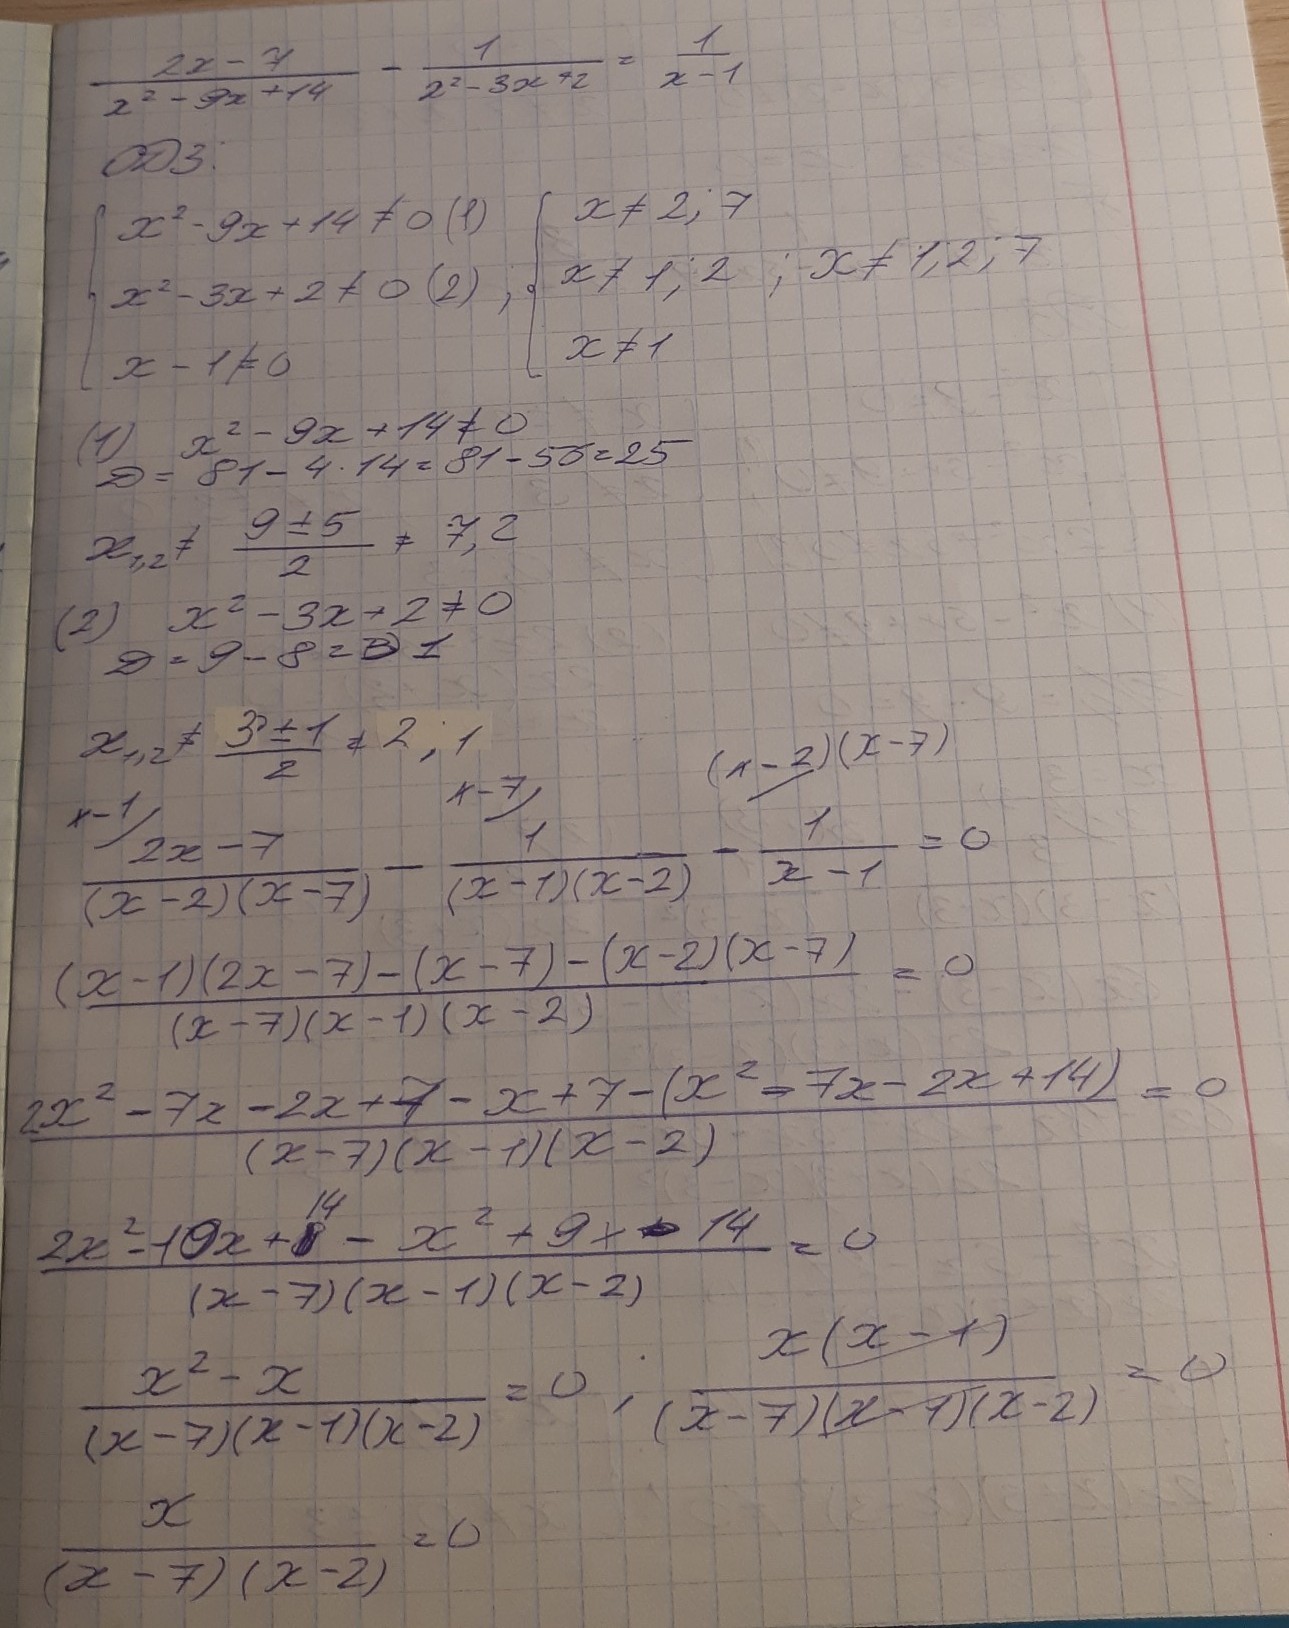 (2x - 7)/(x² - 9x + 14) - 1/(x² - 3x + 2) = 1/(x - 1)
ОДЗ:
{ x² - 9x + 14 ≠ 0 (1) { x ≠ 2; 7
x² - 3x + 2 ≠ 0 (2) ; x ≠ 1; 2 ; x ≠ 1; 2; 7
x - 1 ≠ 0 x ≠ 1
(1) x² - 9x + 14 ≠ 0
D = 81 - 4·14 = 81 - 56 = 25
x₁,₂ ≠ (9 ± 5)/2 ≠ 7, 2
(2) x² - 3x + 2 ≠ 0
D = 9 - 8 = 1
x₁,₂ ≠ (3 ± 1)/2 ≠ 2; 1
x-1/ x-7/ (x-2)(x-7)/
(2x - 7)/((x - 2)(x - 7)) - 1/((x - 1)(x - 2)) - 1/(x - 1) = 0
((x - 1)(2x - 7) - (x - 7) - (x - 2)(x - 7))/((x - 7)(x - 1)(x - 2)) = 0
(2x² - 7x - 2x + 7 - x + 7 - (x² - 7x - 2x + 14))/((x - 7)(x - 1)(x - 2)) = 0
(2x² - 10x + 14 - x² + 9x - 14)/((x - 7)(x - 1)(x - 2)) = 0
(x² - x)/((x - 7)(x - 1)(x - 2)) = 0 ; x(x - 1)/((x - 7)(x - 1)(x - 2)) = 0
x/((x - 7)(x - 2)) = 0